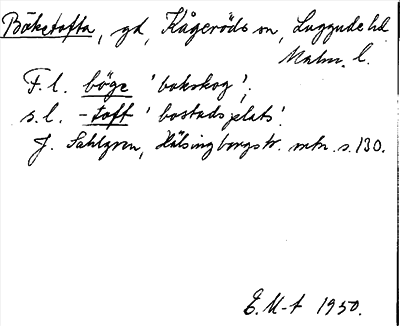 Böketofta, gd, Kågeröds sn, Luggude hd
Malm. l.
F.l. böge 'bokskog';
s.l. -toft 'bostadsplats'.
J. Sahlgren, Hälsingborgstr. ortn. s. 130.
E. M-t 1950.